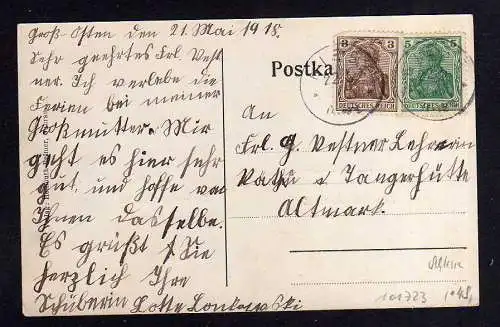 Groß-Osten den 21. Mai 1918.
Sehr geehrtes Frl. Vest
ner. Ich verlebe die
Ferien bei meiner
Großmutter. Mir
geht es hier sehr
gut und hoffe von
Ihnen dasselbe.
Es grüßt Sie
herzlich Ihre
Schülerin Lotte
Postka
3 3
DEUTSCHES REICH
5 5
An
Frl. G. Vestner Lehrerin
Tangerhütte
Altmark.
101723